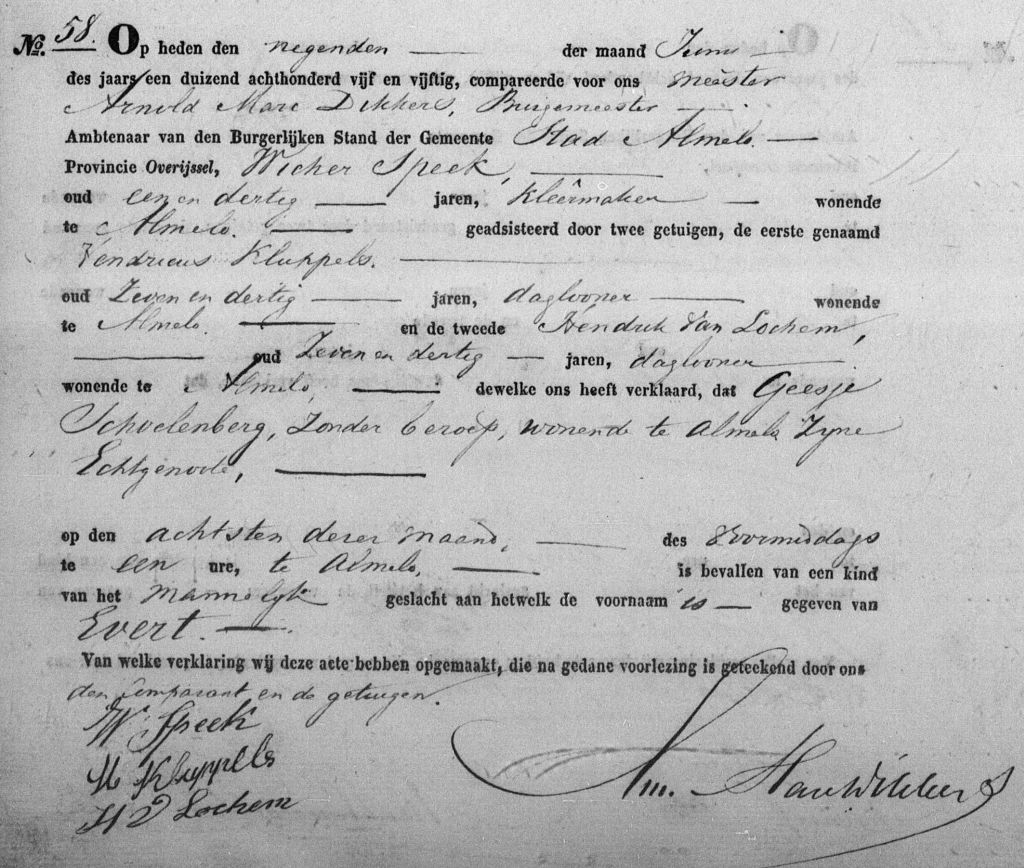 No. 58. Op heden den negenden der maand Junij
des jaars een duizend achthonderd vijf en vijftig, compareerde voor ons meester
Arnold Marc Dikkers, Burgemeester
Ambtenaar van den Burgerlijken Stand der Gemeente Stad Almelo.
Provincie Overijssel, Wicher Speek,
oud een en dertig jaren, kleêrmaker wonende
te Almelo. geadsisteerd door twee getuigen, de eerste genaamd
Hendricus Kluppels.
oud Zeven en dertig jaren, daglooner wonende
te Almelo. en de tweede Hendrik Van Lochem,
oud Zeven en dertig jaren, daglooner
wonende te Almelo, dewelke ons heeft verklaard, dat Geesje
Scholenberg, Zonder beroep, wonende te Almelo Zyne
Echtgenoote,
op den achtsten dezer maand, des Voormiddags
te een ure, te Almelo, is bevallen van een kind
van het mannelyk geslacht aan hetwelk de voornaam is gegeven van
Evert.
Van welke verklaring wij deze acte hebben opgemaakt, die na gedane voorlezing is geteekend door ons
den Comparant en de getuigen.
W Speek
H Kluppels
H V Lochem